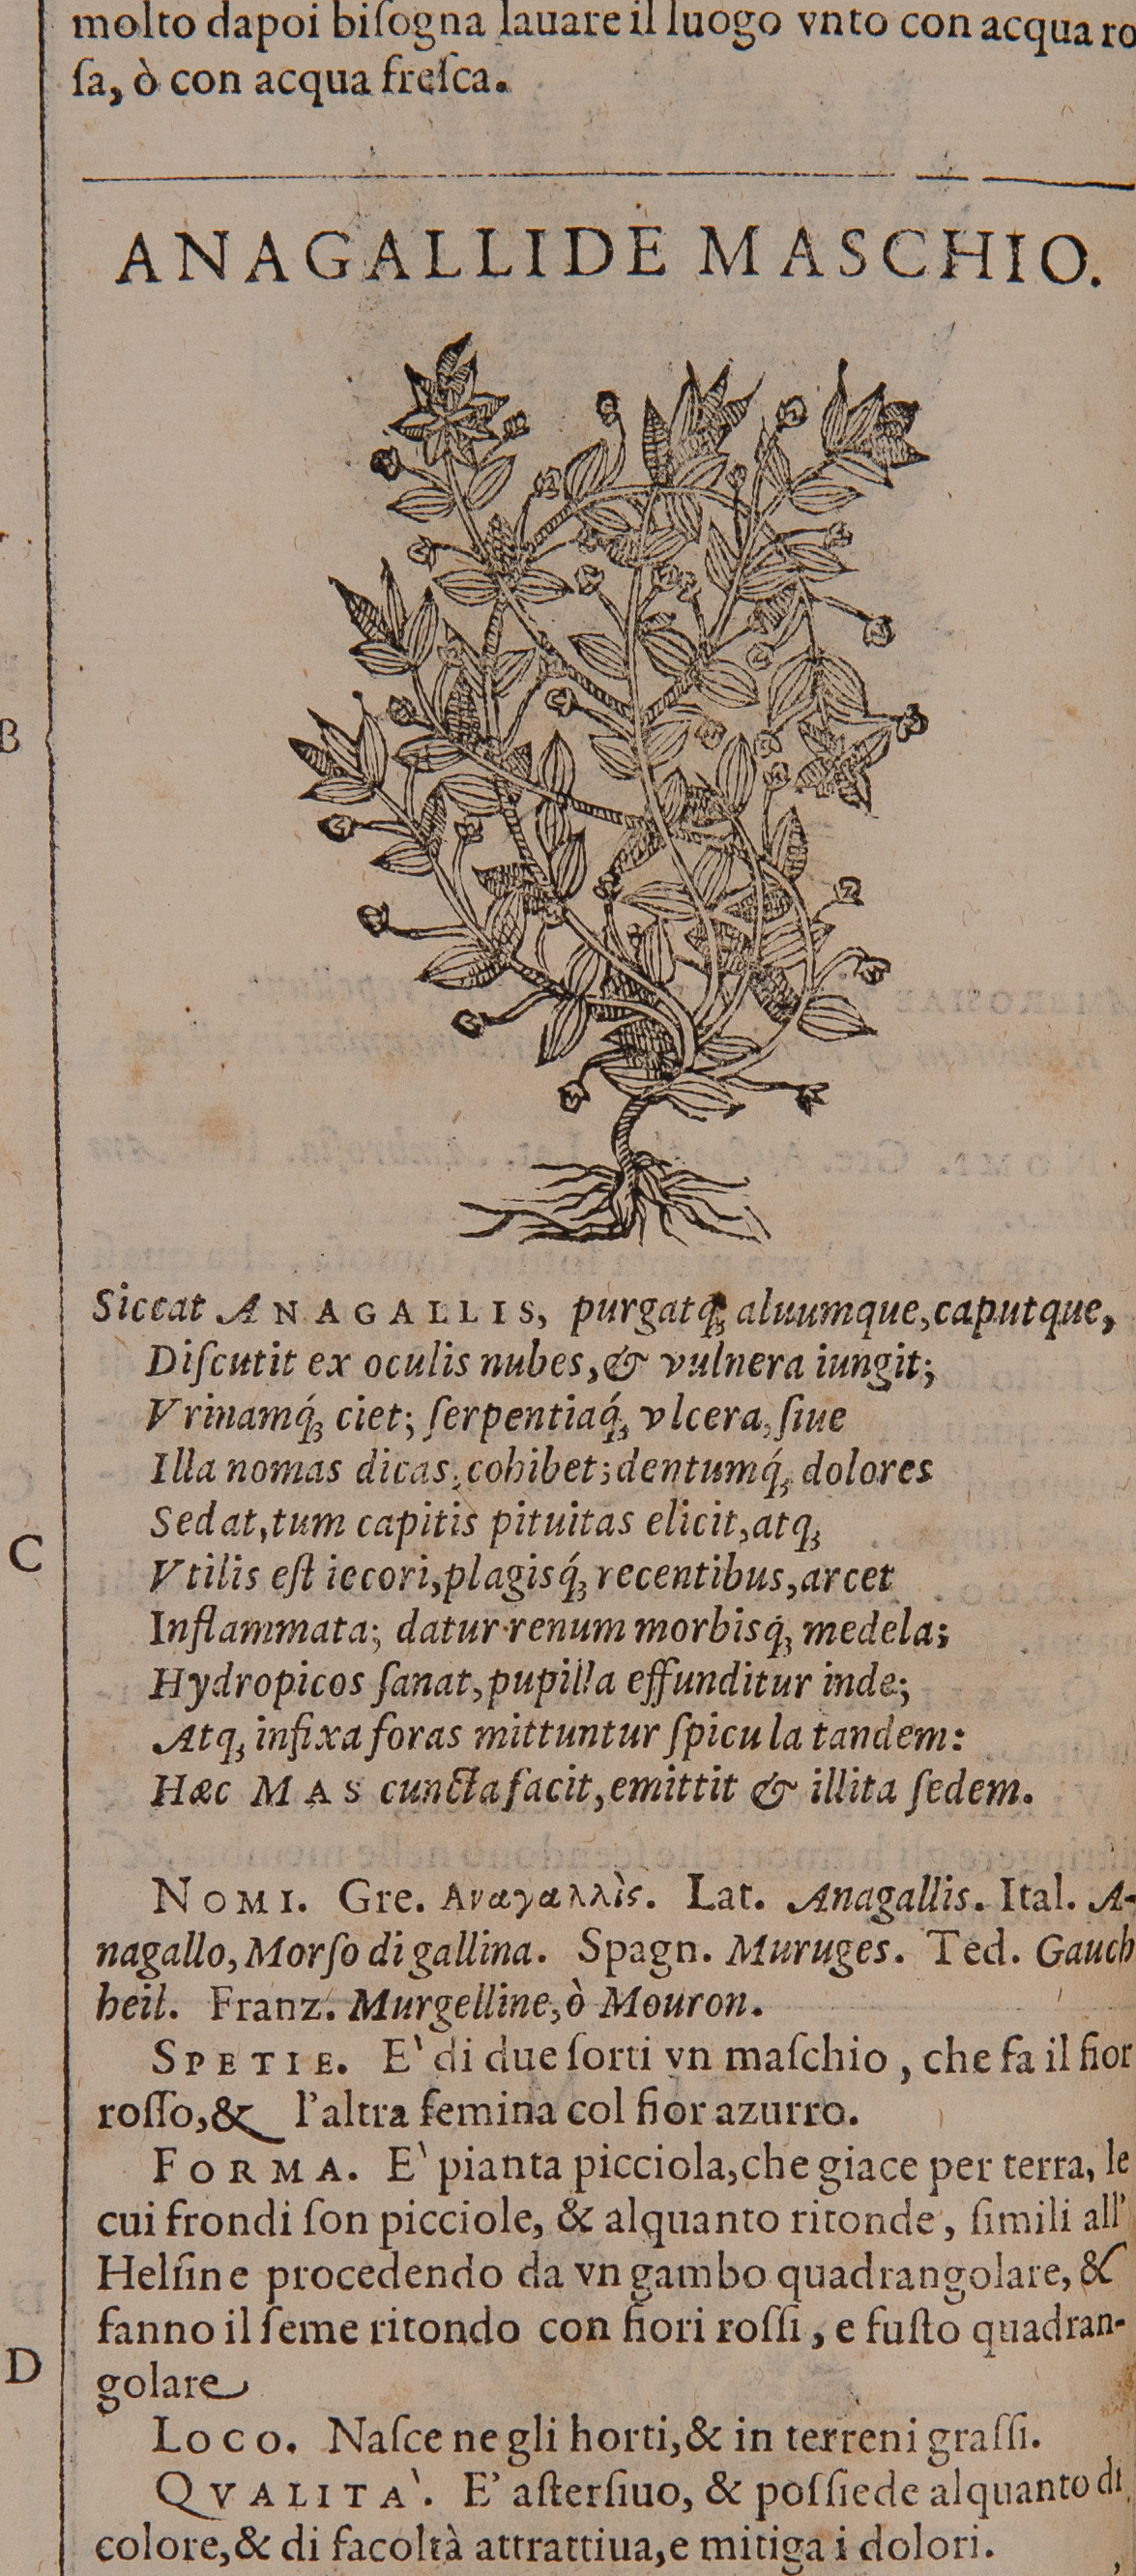 molto dapoi biſogna lauare il luogo vnto con acqua ro
ſa, ò con acqua freſca.
ANAGALLIDE MASCHIO.
B
Siccat ANAGALLIS, purgatq́; aluumque, caputque,
Diſcutit ex oculis nubes, & vulnera iungit;
Vrinamq́; ciet; ſerpentiaq́; vlcera, ſiue
Illa nomas dicas, cohibet; dentumq́; dolores
Sedat, tum capitis pituitas elicit, atq;
C
Vtilis eſt iecori, plagisq́; recentibus, arcet
Inflammata; datur renum morbisq́; medela;
Hydropicos ſanat, pupilla effunditur inde;
Atq; infixa foras mittuntur ſpicula tandem:
Hæc MAS cuncta facit, emittit & illita ſedem.
NOMI. Gre. Αναγαλλὶς. Lat. Anagallis. Ital. A-
nagallo, Morſo di gallina. Spagn. Muruges. Ted. Gauch
heil. Franz. Murgelline, ò Mouron.
SPETIE. E' di due ſorti vn maſchio, che fa il fior
roſſo, & l'altra femina col fior azurro.
FORMA. E' pianta picciola, che giace per terra, le
cui frondi ſon picciole, & alquanto ritonde, ſimili all'
Helſine procedendo da vn gambo quadrangolare, &
fanno il ſeme ritondo con fiori roſſi, e fuſto quadran-
D
golare
LOCO. Naſce ne gli horti, & in terreni graſſi.
QVALITA'. E' aſterſiuo, & poſſiede alquanto di
colore, & di facoltà attrattiua, e mitiga i dolori.